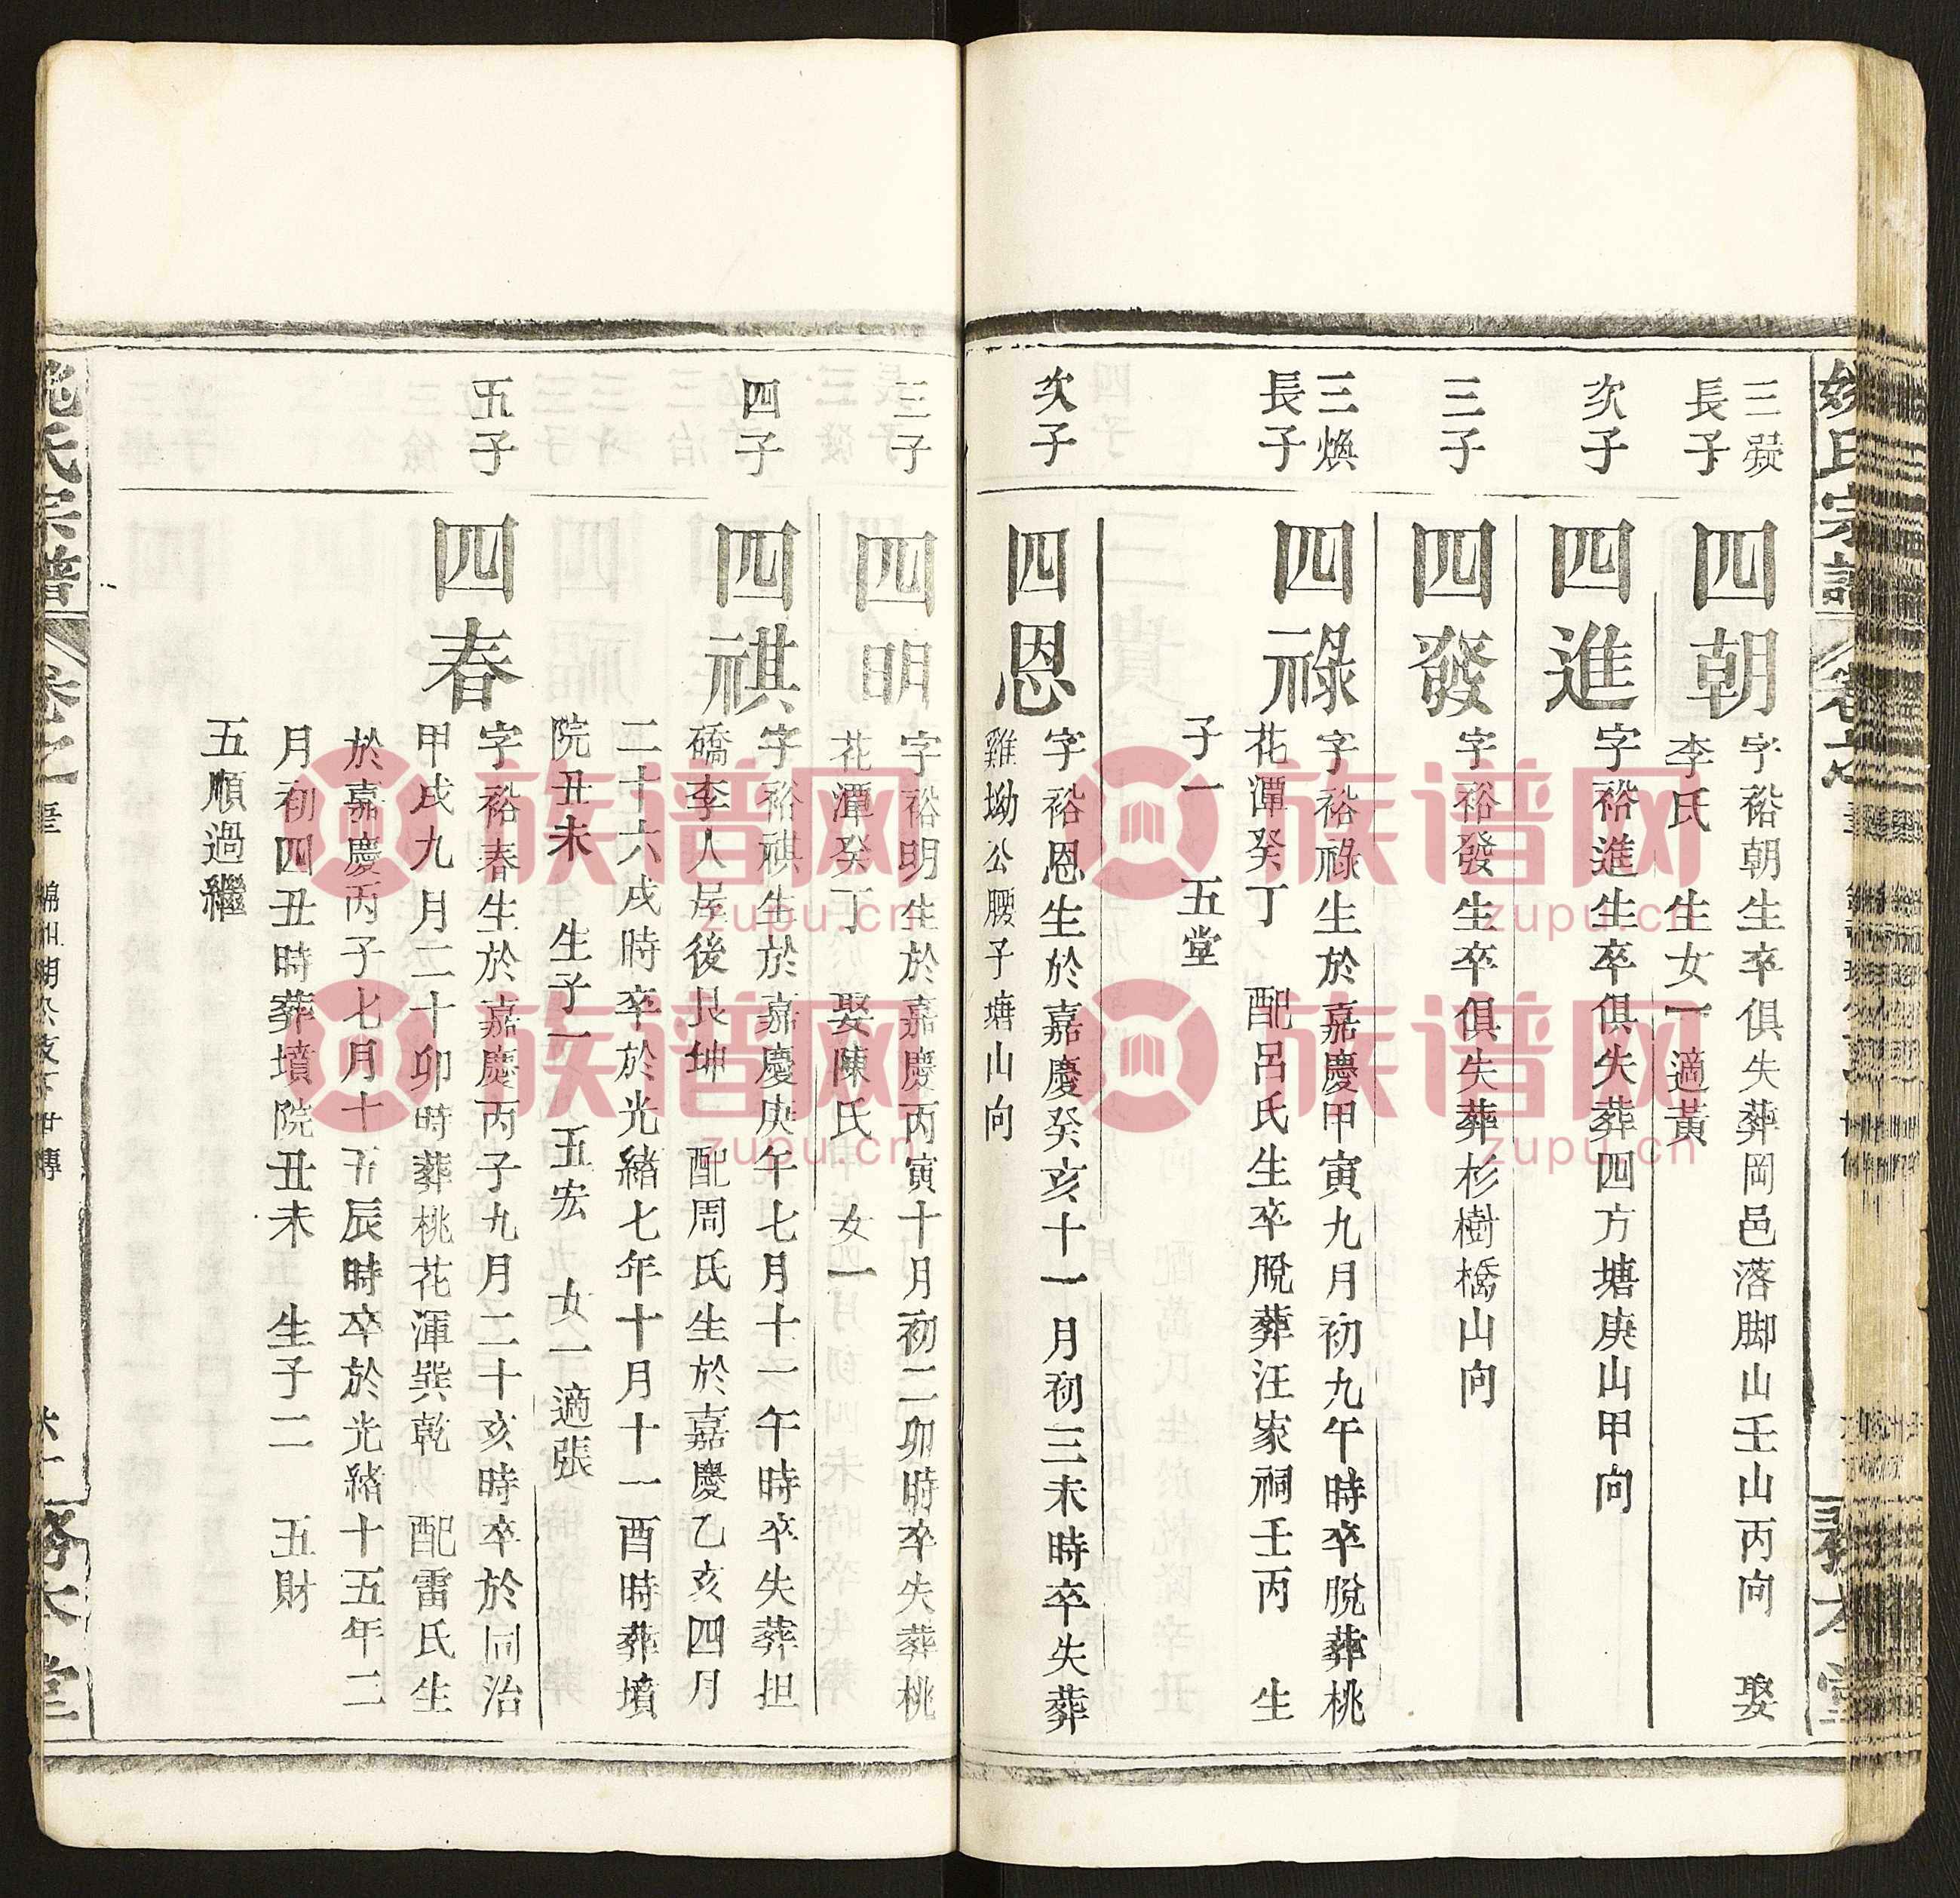 三㷼
長子
四朝
字裕朝生卒俱失葬岡邑落脚山壬山丙向 娶
李氏 生女一 適黃
次子
四進
字裕進生卒俱失葬四方塘庚山甲向
三子
四發
字裕發生卒俱失葬杉樹橋山向
三煥
長子
四祿
字裕祿生於嘉慶甲寅九月初九午時卒脫葬桃
花潭癸丁 配呂氏生卒脫葬汪家祠壬丙 生
子一 五堂
次子
四恩
字裕恩生於嘉慶癸亥十一月初三未時卒失葬
雞坳公腰子塘山向
三子
四明
字裕明生於嘉慶丙寅十月初二卯時卒失葬桃
花潭癸丁 娶陳氏 女一
四子
四祺
字裕祺生於嘉慶庚午七月十一午時卒失葬担
礄李人屋後艮坤 配周氏生於嘉慶乙亥四月
二十六戌時卒於光緒七年十月十一酉時葬墳
院丑未 生子一 五宏 女一適張
五子
四春
字裕春生於嘉慶丙子九月二十亥時卒於同治
甲戌九月二十卯時葬桃花渾巽乾 配雷氏生
於嘉慶丙子七月十五辰時卒於光緒十五年二
月初四丑時葬墳院丑未 生子二 五財
五順過繼
姚氏宗譜
務本堂
族谱网
zupu.cn
族谱网
zupu.cn
族谱网
zupu.cn
族谱网
zupu.cn